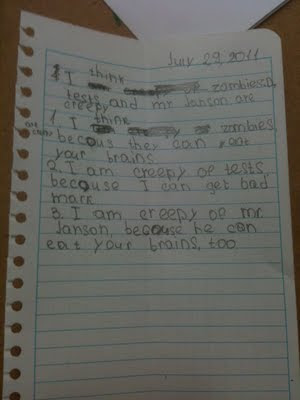 July 29, 2011
I think zombies,
tests, and mr Janson are
creepy
1. I think zombies
are creepy
becous they can eat
your brains.
2. I am creepy of tests,
becouse I can get bad
mark.
3. I am creepy of mr.
Janson, because he can
eat your brains, too.